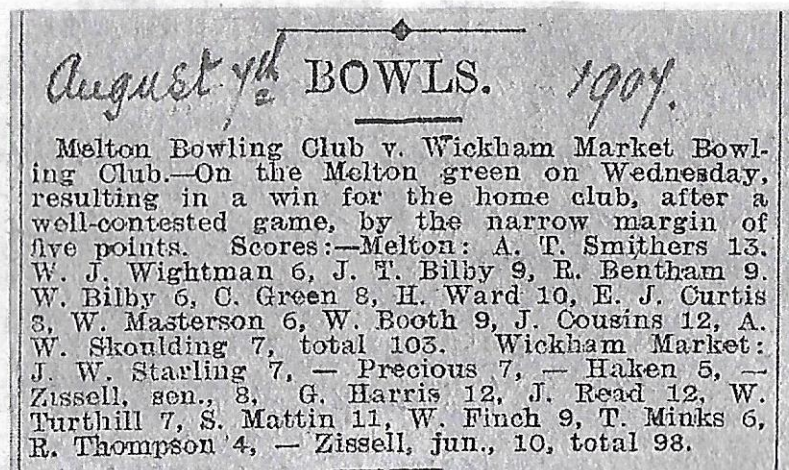 August 7th BOWLS. 1907.
Melton Bowling Club v. Wickham Market Bowl-
ing Club.—On the Melton green on Wednesday,
resulting in a win for the home club, after a
well-contested game, by the narrow margin of
five points. Scores:—Melton: A. T. Smithers 13.
W. J. Wightman 6, J. T. Bilby 9, R. Bentham 9.
W. Bilby 6, C. Green 8, H. Ward 10, E. J. Curtis
8, W. Masterson 6, W. Booth 9, J. Cousins 12, A.
W. Skoulding 7, total 103. Wickham Market:
J. W. Starling 7, — Precious 7, — Haken 5, —
Zissell, sen., 8, G. Harris 12, J. Read 12, W.
Turthill 7, S. Mattin 11, W. Finch 9, T. Minks 6,
R. Thompson 4, — Zissell, jun., 10, total 98.